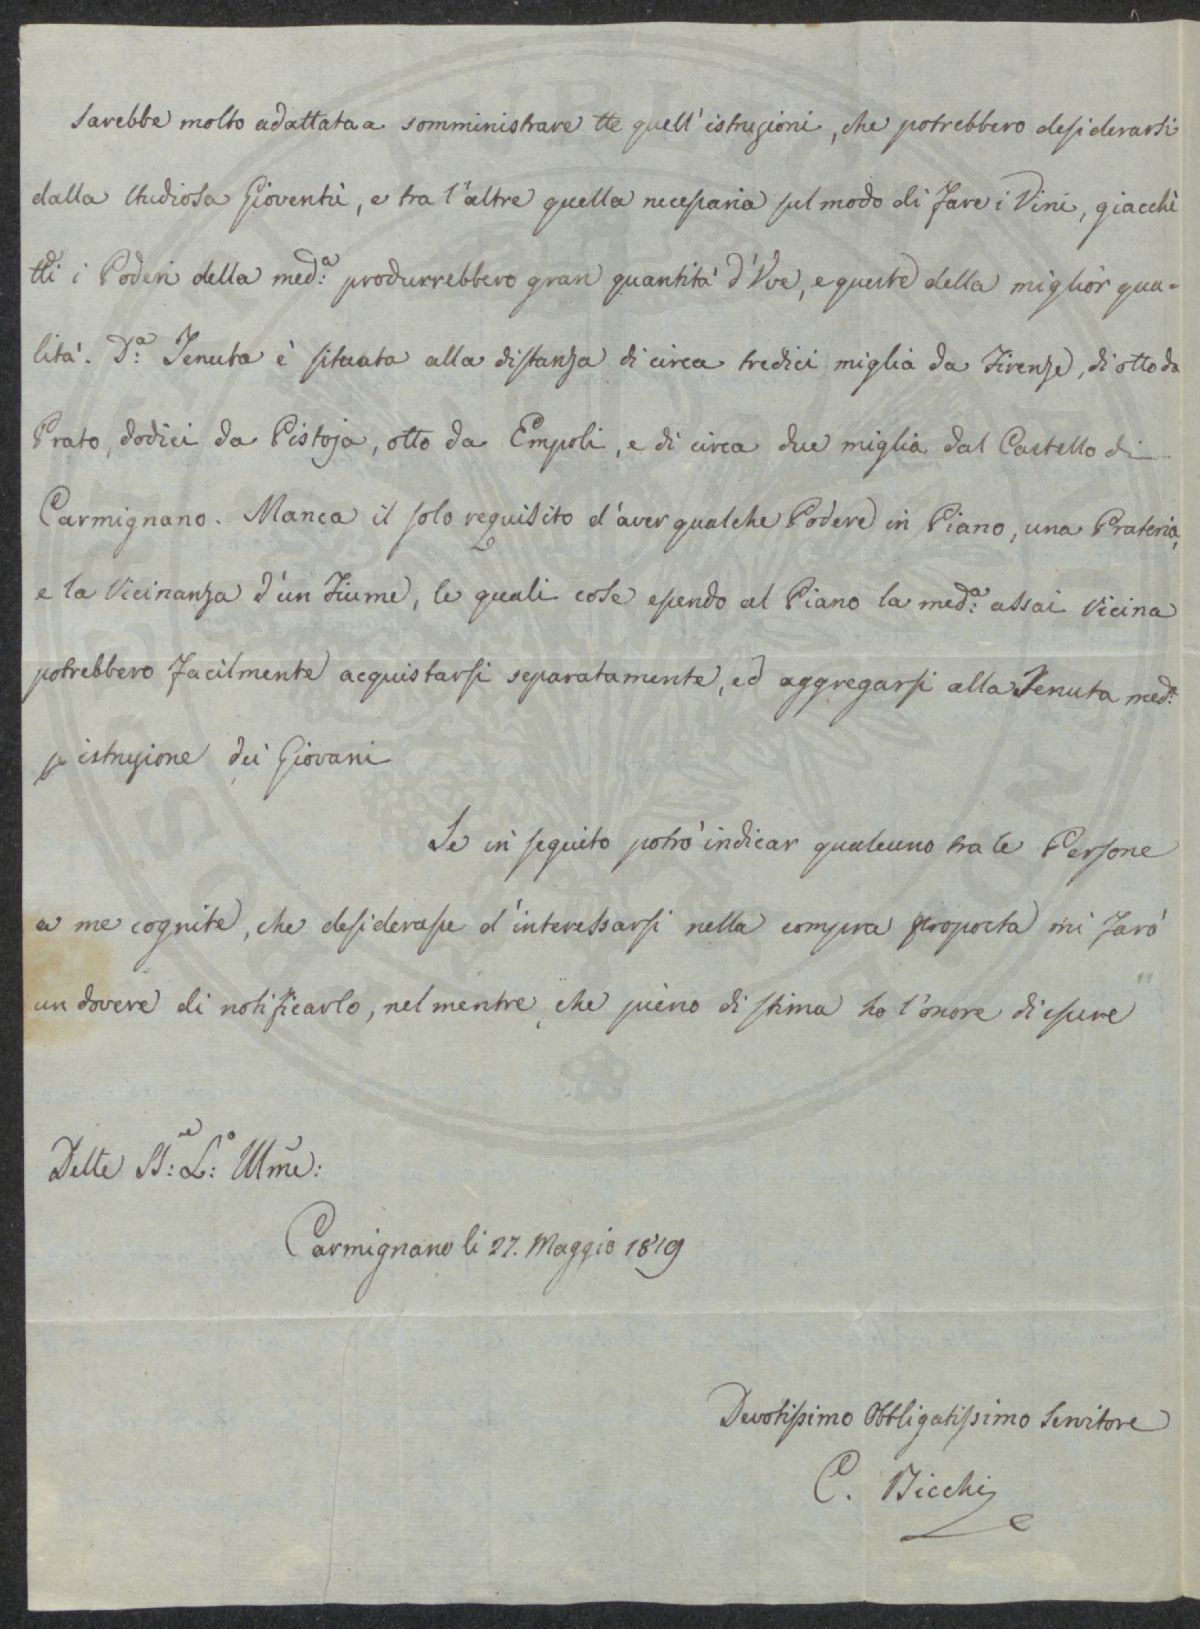 sarebbe molto adattata a somministrare tte quell'istruzioni, che potrebbero desiderarsi
dalla studiosa Gioventù, e tra l'altre quella necessaria sul modo di fare i Vini, giacchè
tti i Poderi della med.a produrrebbero gran quantità d'Uve, e queste della miglior qua-
lità. D.a Tenuta è situata alla distanza di circa tredici miglia da Firenze, di otto da
Prato, dodici da Pistoja, otto da Empoli, e di circa due miglia dal Castello di
Carmignano. Manca il solo requisito d'aver qualche Podere in Piano, una Prateria,
e la Vicinanza d'un Fiume, le quali cose essendo al Piano la med.a assai vicina
potrebbero facilmente acquistarsi separatamente, ed aggregarsi alla Tenuta med.a
p istruzione dei Giovani
Se in seguito potrò indicar qualcuno tra le Persone
a me cognite, che desiderasse d'interessarsi nella compra proposta mi farò
un dovere di notificarlo, nel mentre che pieno di stima ho l'onore di essere
Delle SS.: LL.: Illme:
Carmignano li 27. Maggio 1819
Devotissimo Obbligatissimo Servitore
C. Bicchi